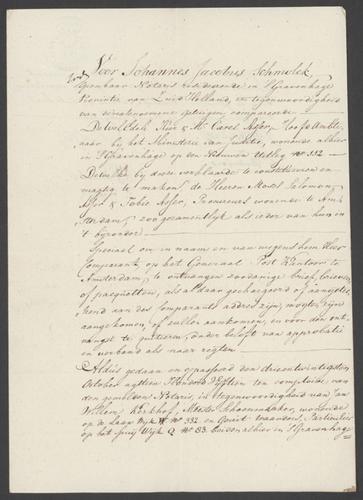 Voor Johannes Jacobus Schmolck,
Openbaar Notaris resideerende in 'sGravenhage
Provintie van Zuid Holland, en tegenwoordigheid
van de natenoemene getuigen, compareerde
De WelEdele Heer & Mr. Carel Asser, Hoofd Ambte-
naar bij het Ministerie van Justitie, wonende alhier
in 'sGravenhage op den Nieuwen Uitleg No 332
Dewelke bij deese verklaarde te constitueeren en
magtig te maken de Heeren Moses Salomon
Asser & Tobie Asser, Procureurs wonende te Am-
sterdam, zoo gezamentlijk als ieder van hun in
't bijzonder
Speciaal om in naam en van wegens hem Heer
Comparant op het Generaal Post Kantoor te
Amsterdam, te ontvangen zoodanige brief, brieven
of pacquetten, als aldaar gechargeerd of aangetee-
kend aan des Comparants addres zijn, mogten zijn
aangekomen, of zullen aankomen, en voor den ont-
vangst te quiteeren, onder belofte van approbatie
en verband als naar regten.
Aldus gedaan en gepasseerd den drieentwintigsten
October agttien Honderd Vyftien ten comptoire van
den gemelden Notaris, in tegenwoordigheid van Jan
Willem Kerkhof, Meester Schoenmaker, wonende
op de Laan Wijk No 332 en Govert
op het Spuij Wijk Q No 83. beiden alhier in 'sGravenhage